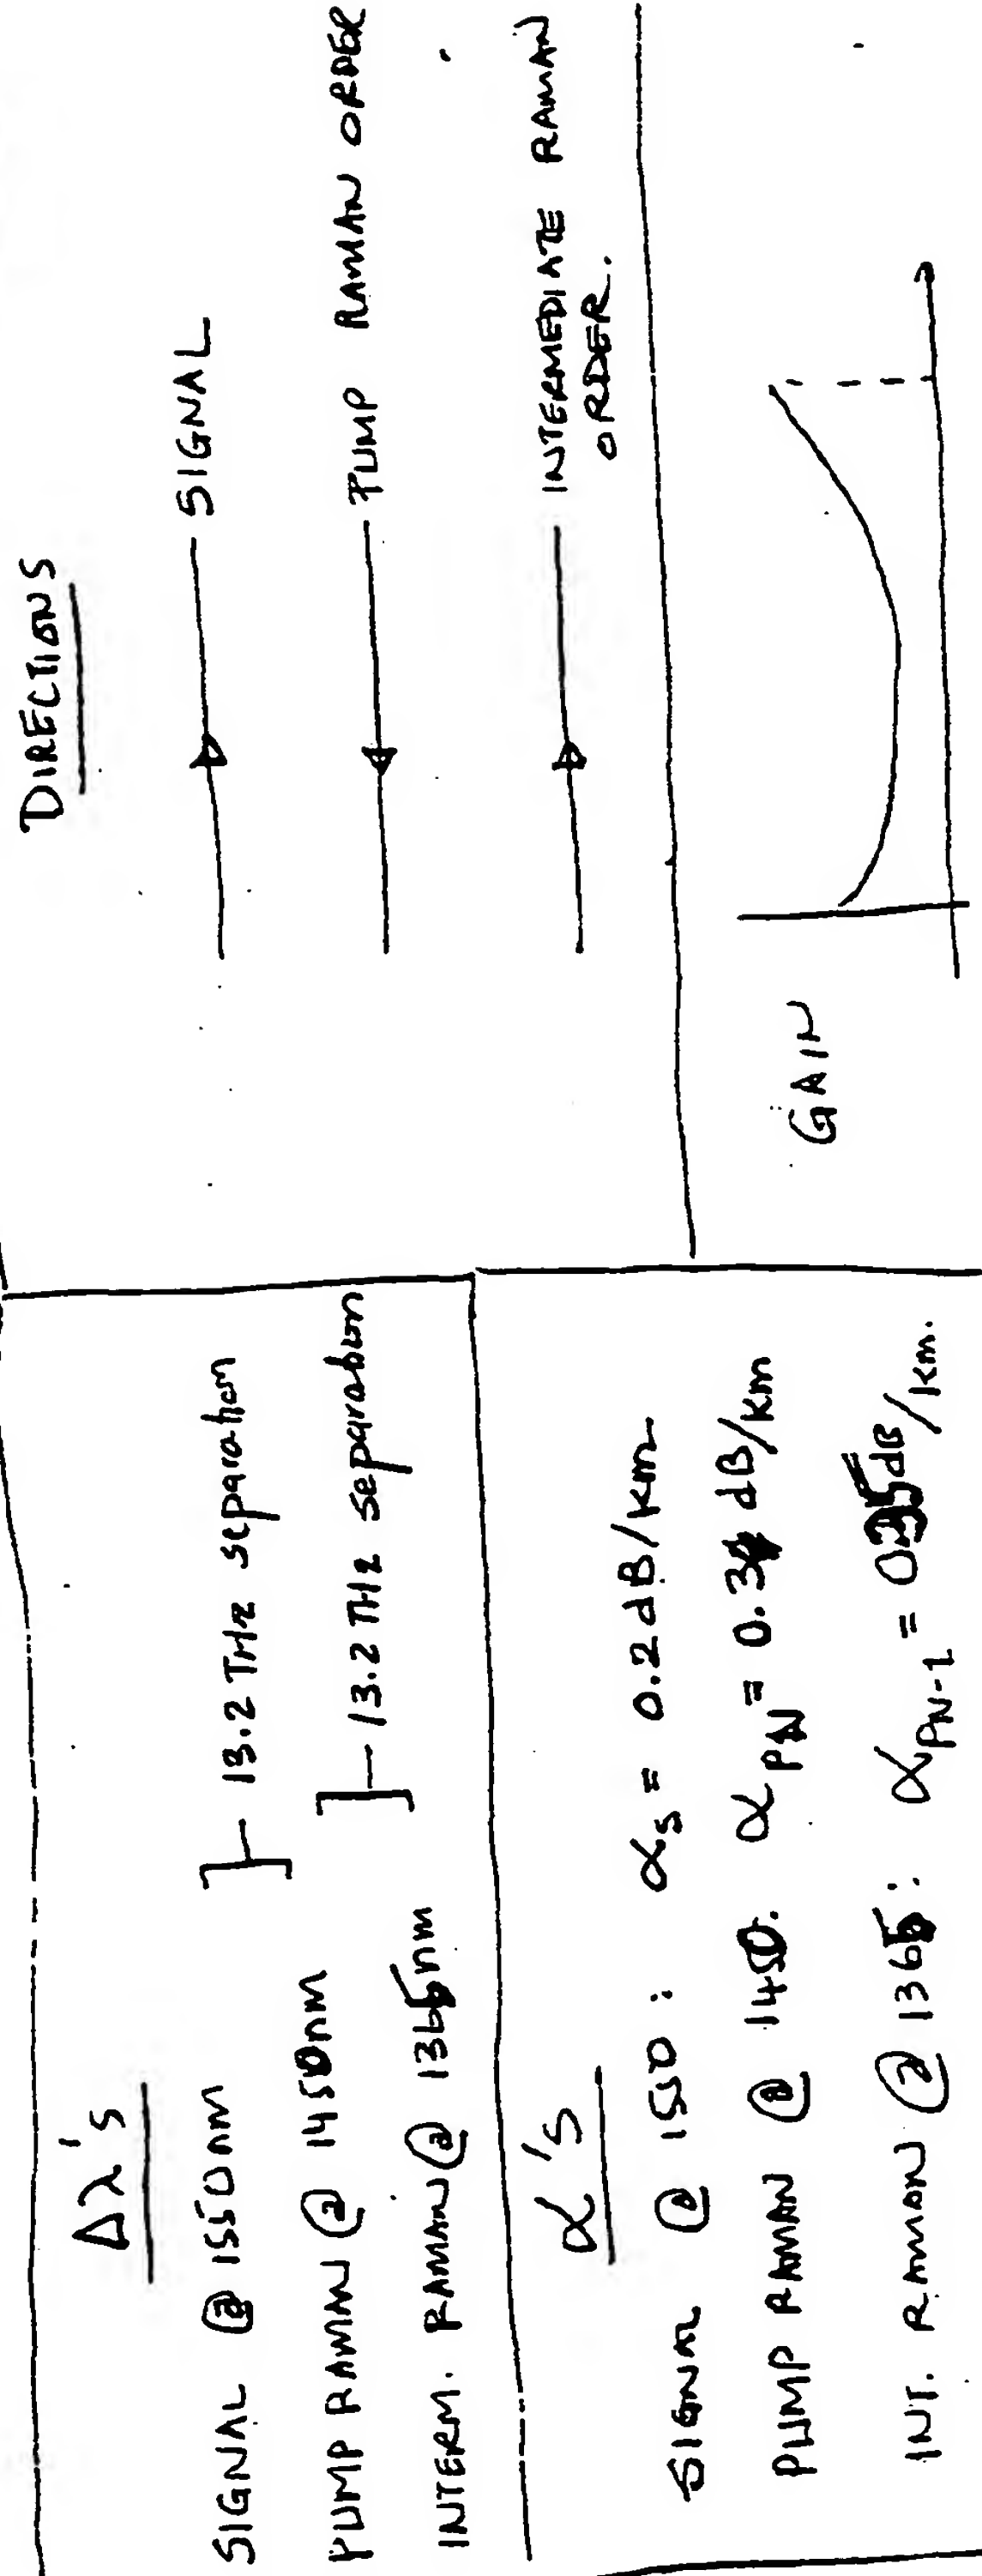 Δλ's
SIGNAL @ 1550nm
PUMP RAMAN @ 1450nm
INTERM. RAMAN @ 1365nm
13.2 THz separation
13.2 THz separation
α's
SIGNAL @ 1550: αs = 0.2 dB/km
PUMP RAMAN @ 1450: αPN = 0.3 dB/km
INT. RAMAN @ 1365: αPN-1 = 0.35dB/km.
DIRECTIONS
SIGNAL
PUMP RAMAN ORDER
INTERMEDIATE RAMAN
ORDER.
GAIN